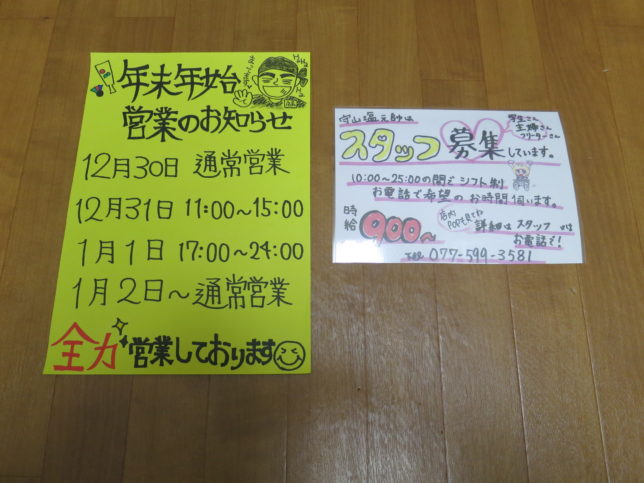 年末年始
営業のお知らせ
12月30日 通常営業
12月31日 11:00～15:00
1月1日 17:00～24:00
1月2日～通常営業
全力営業しております
守山塩元帥は
学生さん
主婦さん
フリーターさん
スタッフ募集しています。
10:00～25:00の間でシフト制
お電話で希望のお時間伺います。
時給900～
店内
詳細はスタッフ
お電話で!
TEL 077-599-3581